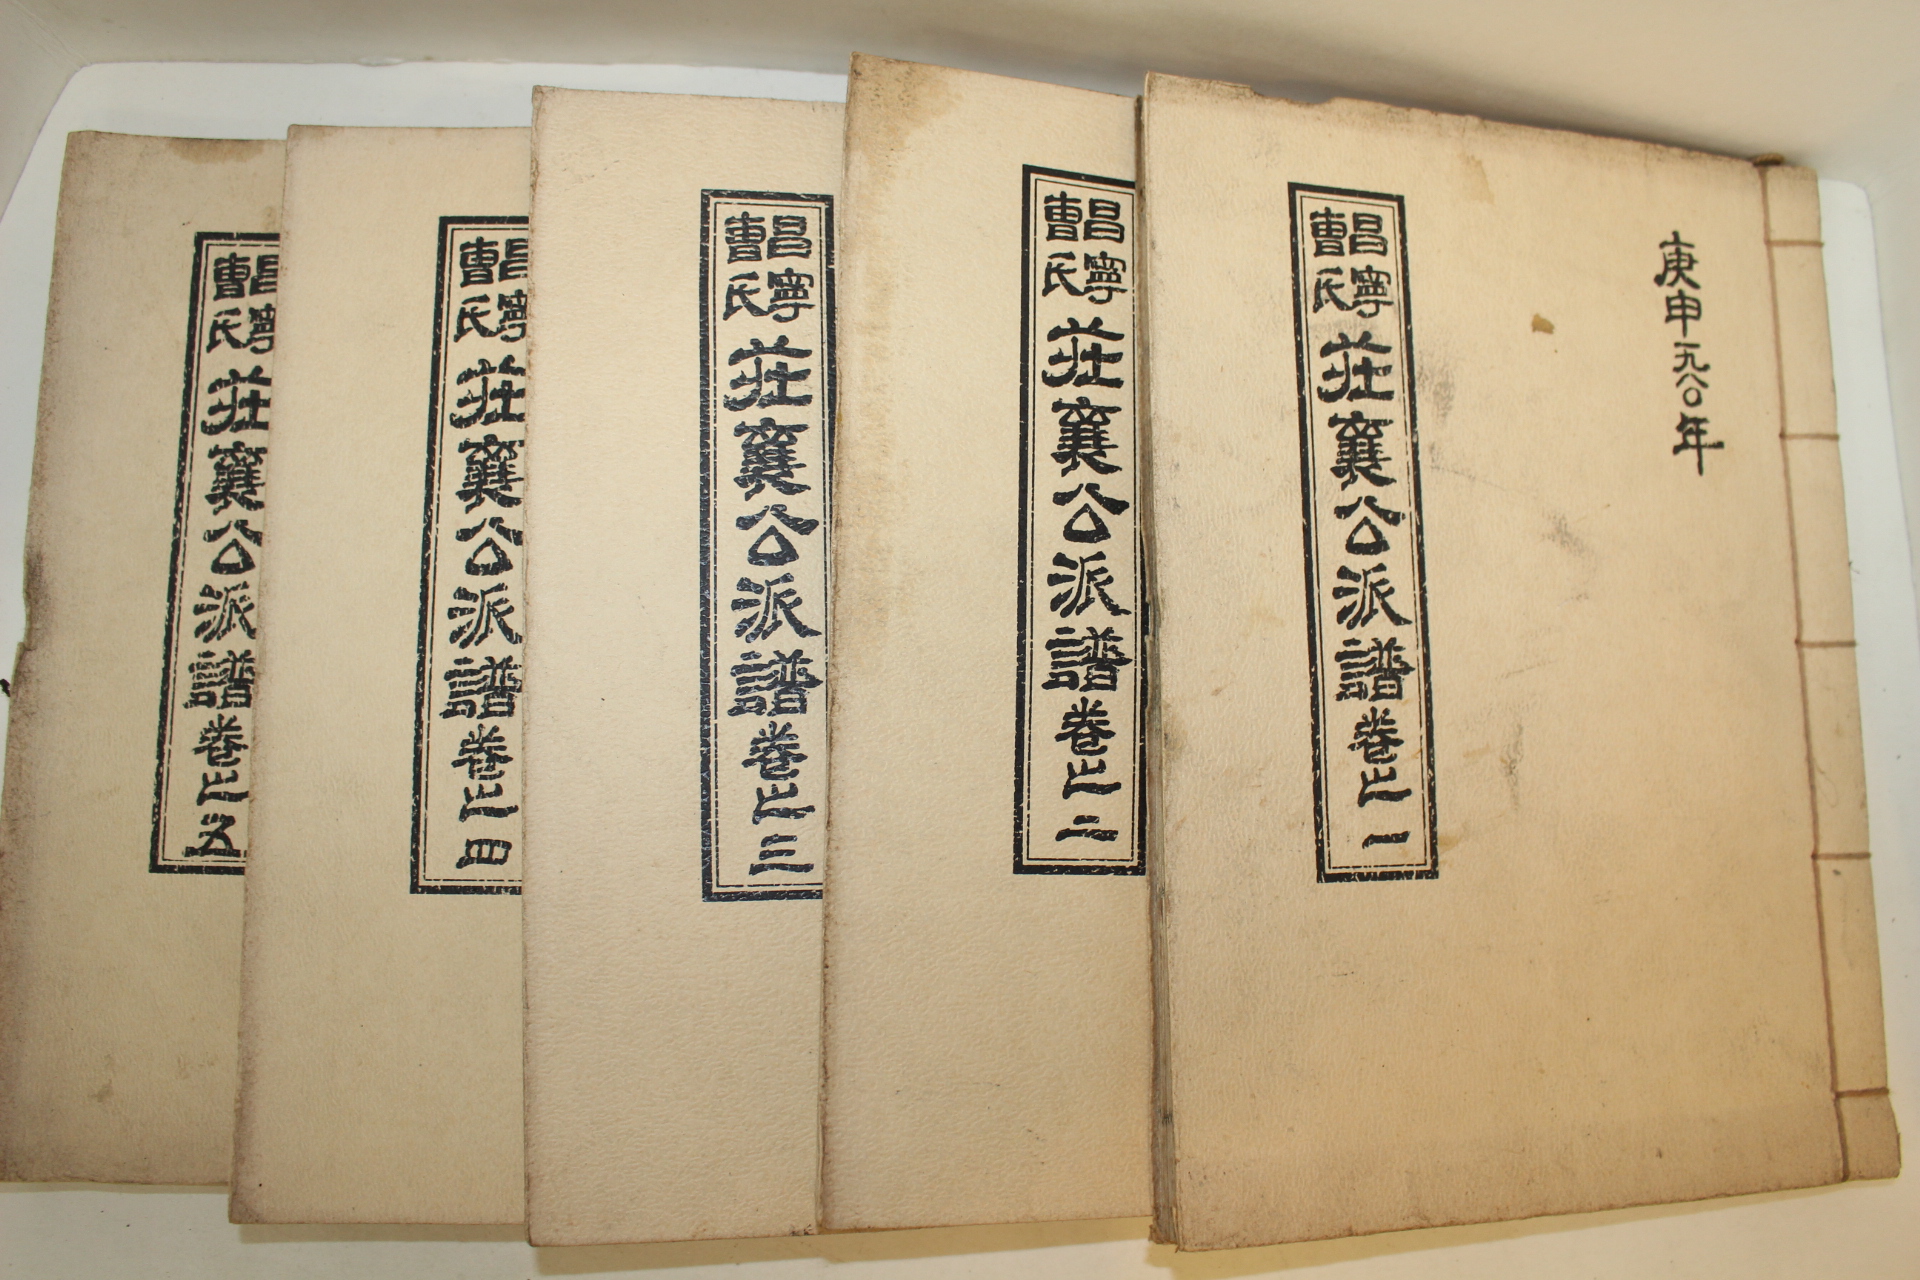 庚申一九八〇年
昌寧
曹氏
莊襄公派譜卷之一
昌寧
曹氏
莊襄公派譜卷之二
昌寧
曹氏
莊襄公派譜卷之三
昌寧
曹氏
莊襄公派譜卷之四
昌寧
曹氏
莊襄公派譜卷之五